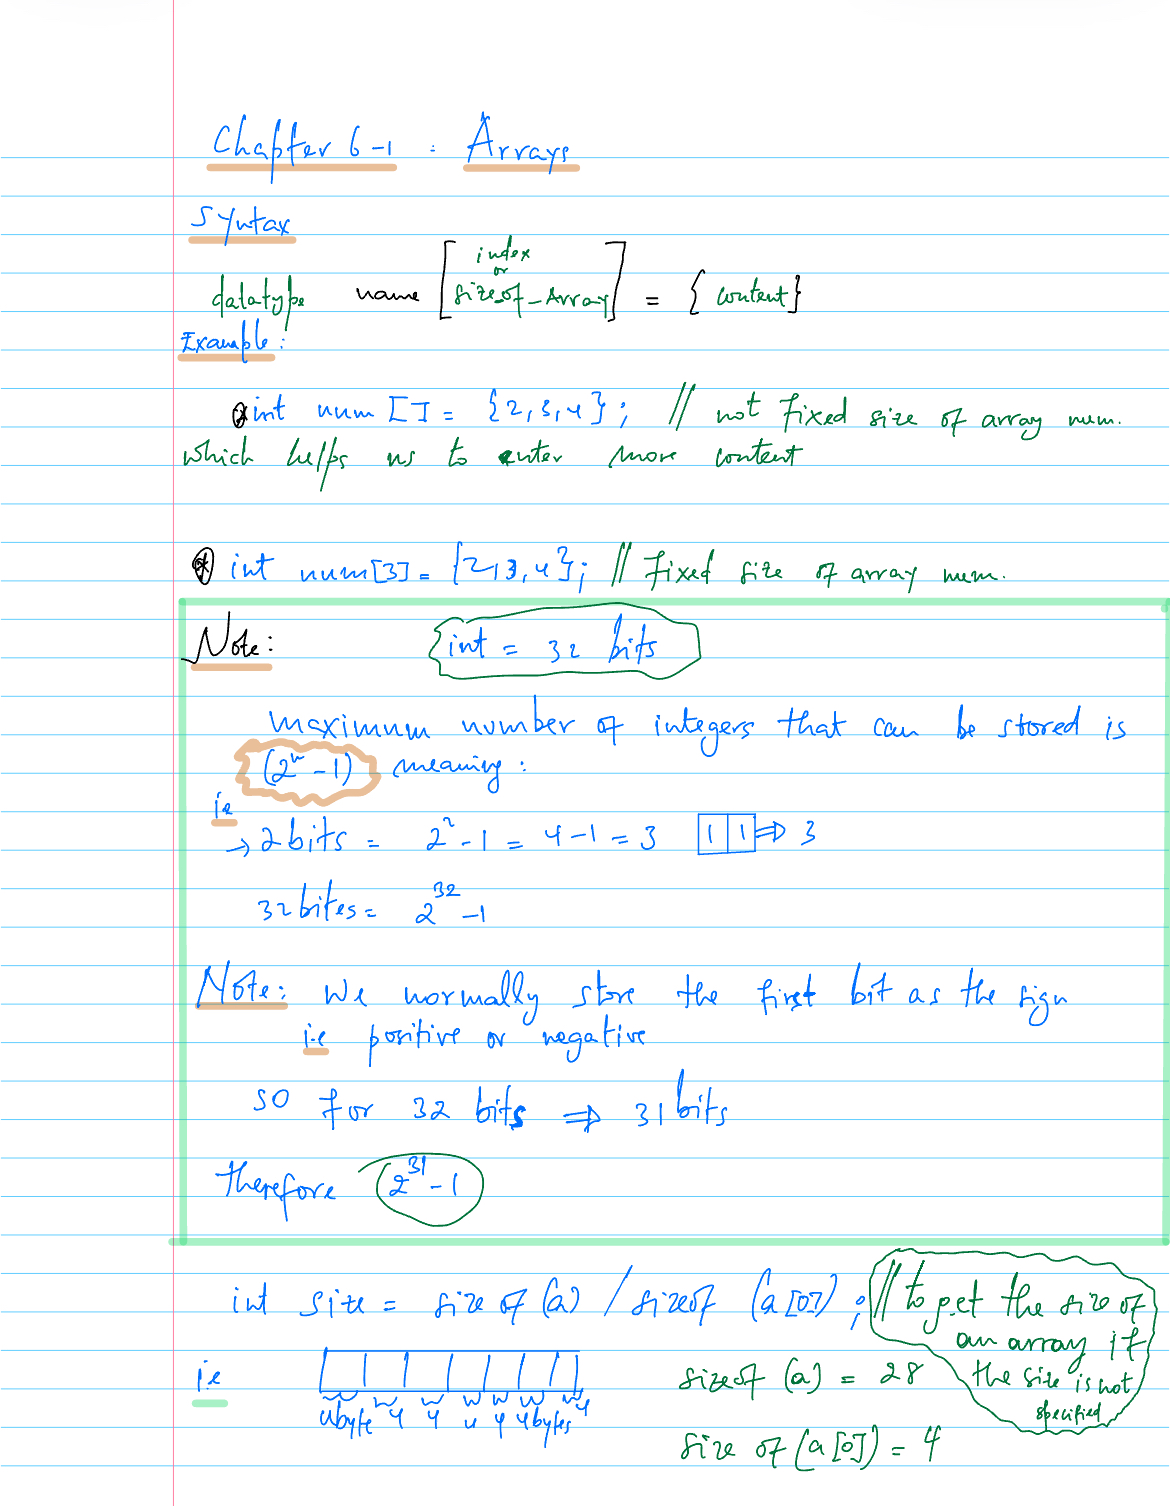 Chapter 6-1 : Arrays
Syntax
datatype name [index or size_of_Array] = {content}
Example:
* int num [] = {2,3,4}; // not fixed size of array num.
which helps us to enter more content
* int num[3] = {2,3,4}; // fixed size of array num.
Note: int = 32 bits
maximum number of integers that can be stored is
(2^n - 1) meaning:
ie
→ 2 bits = 2^2 - 1 = 4 - 1 = 3 |1|1| ⇒ 3
32 bites = 2^32 - 1
Note: We normally store the first bit as the sign
i.e positive or negative
so for 32 bits ⇒ 31 bits
therefore (2^31 - 1)
int size = size of (a) / sizeof (a[0]) ; // to get the size of
an array if
the size is not
specified
i.e
4byte 4 4 4 4 4bytes 4
sizeof (a) = 28
size of (a[0]) = 4